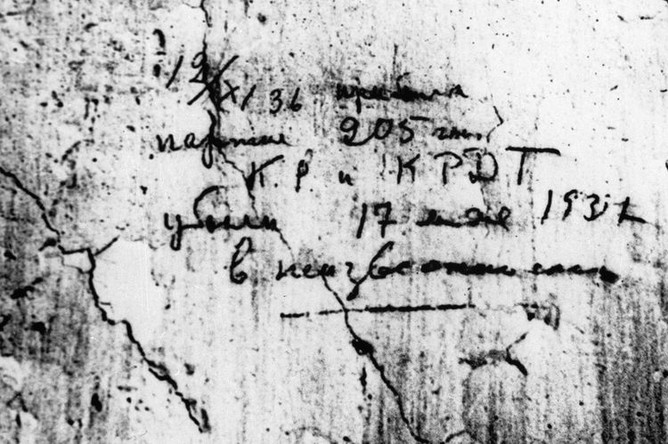 12/XI 36 прибыла
партия 205 чел.
К.Р и КРДТ
убыли 17 мая 1937
в неизвестность